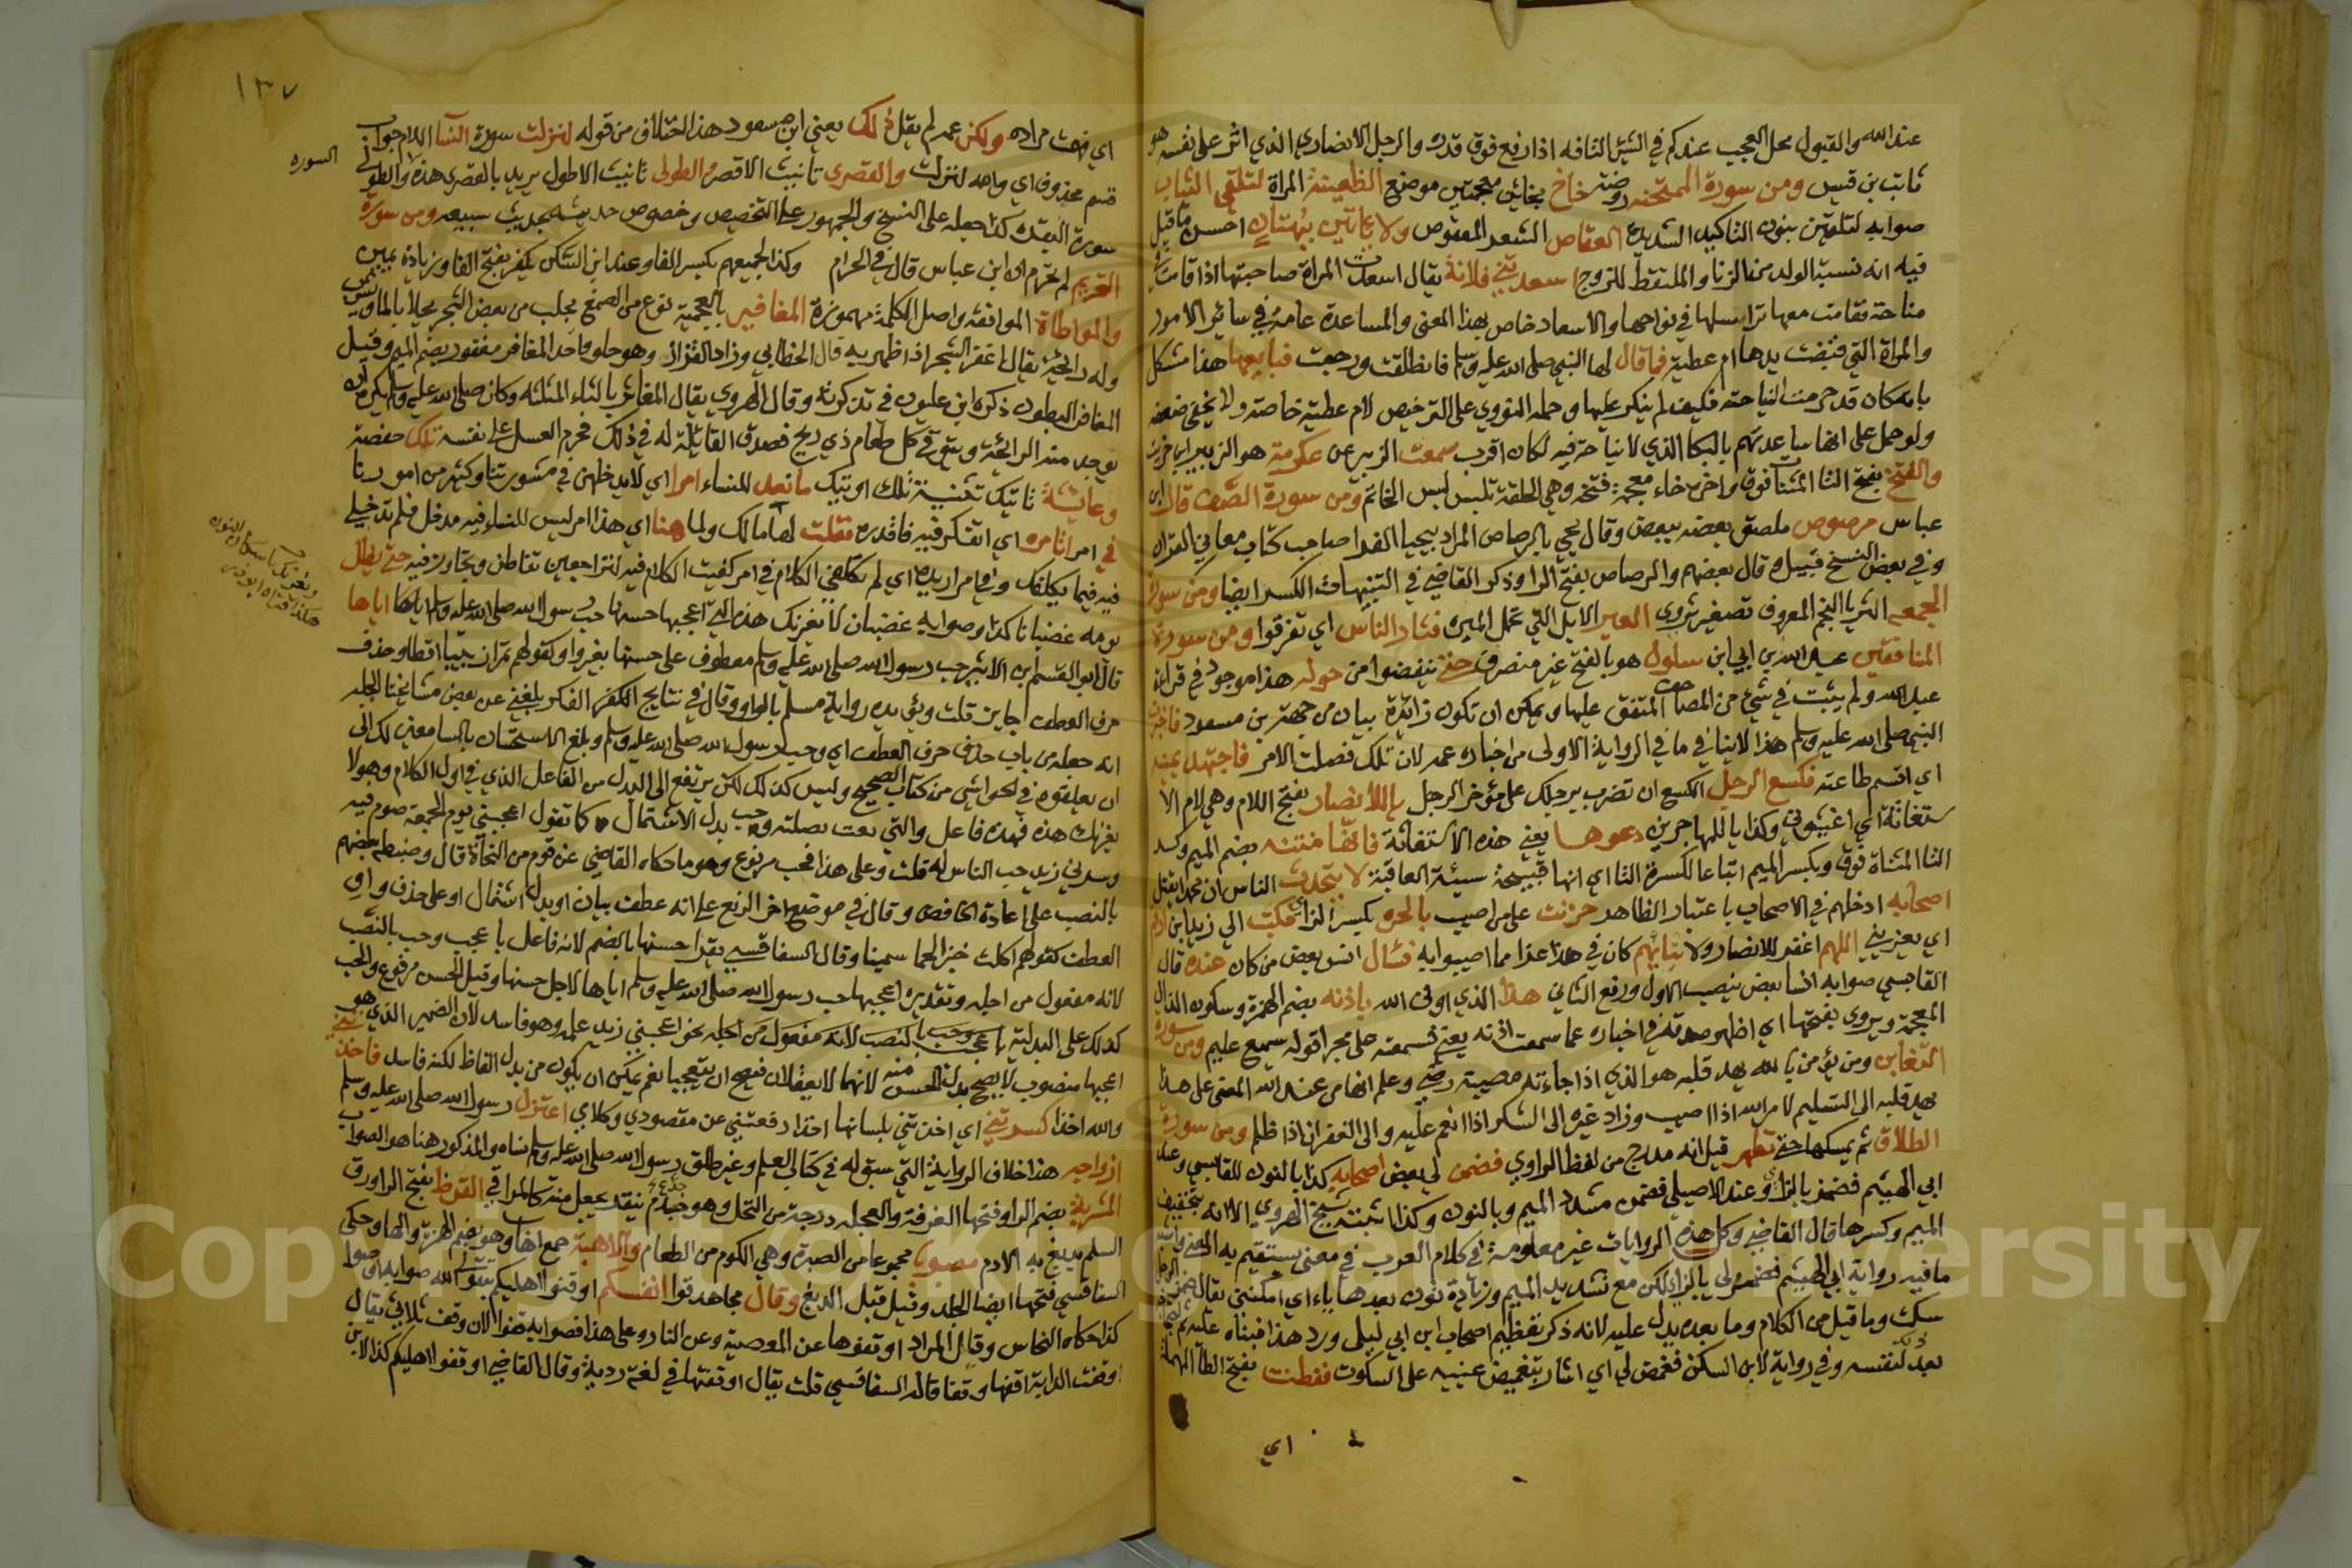 عند الله والقبول محل العجب عندكم في الشئ التافه اذا رفع فوق قدره والرجل الانصاري الذي اثر على نفسه هو
ثابت بن قيس ومن سورة الممتحنه روضة خاخ بخائين معجمتين موضع الظعينة المراة لتلقي الثياب
صوابه لتلقين بنون التاكيد الشديده العقاص الشعر المعقوص ولا ياتين ببهتان احسن ما قيل
فيه انه نسبة الولد من الزنا والملتقط للزوج اسعدتني فلانة يقال اسعدت المراة صاحبتها اذا قامت
مناحة فقامت معها تراسلها في نواحها والاسعاد خاص بهذا المعنى والمساعدة عامة في سائر الامور
والمراة التي قبضت يدها ام عطية فما قال لها النبي صلى الله عليه وسلم فانطلقت ورجعت فبايعها هذا مشكل
بانه كان قد حرمت النياحة فكيف لم ينكر عليها وحمله النووي على الترخيص لام عطية خاصة ولا يخفى ضعفه
ولو حمل على انها ساعدتهم بالبكا الذي لا نياحة فيه لكان اقرب سمعت الزبير عن عكرمة هو الزبير ابن خريت
والفتخ بفتح التا المثناة فوق واخره خاء معجمة فتخه وهي الحلقة تلبس لبس الخاتم ومن سورة الصف قال ابن
عباس مرصوص ملصق بعضه ببعض وقال يحيى بالرصاص المراد بيحيا الفرا صاحب كتاب معاني القران
وفي بعض النسخ قبيله قال بعضهم والرصاص بفتح الرا وذكر القاضي في التنبيهات الكسر ايضا ومن سورة
الجمعه الثريا النجم المعروف تصغير ثروى العير الابل التي تحمل الميره فثار الناس اي تفرقوا ومن سورة
المنافقين عبد الله بن ابي ابن سلول هو بالفتح غير منصرف حتى ينفضوا من حوله هذا موجود في قراءة
عبد الله ولم يثبت في شئ من المصاحف المتفق عليها ويمكن ان تكون زائدة بيان من جهة بن مسعود فاخبرت
النبي صلى الله عليه وسلم هذا لا ينافي ما في الرواية الاولى من اخباره عمه لان تلك فصلت الامر فاجتهد يمينه
اي اقسم طاعته فكسع الرجل الكسع ان تضرب برجلك على مؤخر الرجل ياللانصار بفتح اللام وهي لام الا
ستغاثة اي اغيثوني وكذا ياللمهاجرين دعوها يعني هذه الاستغاثة فانها منتنه بضم الميم وكسر
التا المثناة فوق وبكسر الميم اتباعا لكسرة التا اي انها قبيحة سيئة العاقبة لا يتحدث الناس ان محمدا يقتل
اصحابه ادخلهم في الاصحاب باعتبار الظاهر حزنت على من اصيب بالحره بكسر الزاي فكتب الي زيد بن ارقم
اي يعزيني اللهم اغفر للانصار ولابنايهم كان في هذا عزا مما اصيبوا به فسال انس بعض من كان عنده قال
القابسي صوابه انسا بعض بنصب الاول ورفع الثاني هذا الذي اوفى الله باذنه بضم الهمزة وسكون الذال
المعجمة ويروى بفتحها اي اظهر صدقه في اخباره عما سمعت اذنه يعني فسمعته حلي مجرا قوله سميع عليم ومن سورة
التغابن ومن يؤمن بالله يهد قلبه هو الذي اذا جاءته مصيبة رضي وعلم انها من عند الله المعنى على هذا
يهد قلبه الى التسليم لامر الله اذا اصيب وزاد غيره الى الشكر اذا انعم عليه والى الغفران اذا ظلم ومن سورة
الطلاق ثم يمسكها حتى تطهر قيل انه مدرج من لفظ الراوي فضمن لي بعض اصحابه كذا بالنون للقابسي وعند
ابي الهيثم فضمز بالزاي وعند الاصيلي فضمن مشدد الميم وبالنون وكذا نسخة الهروي الا انه بتخفيف
الميم وكسرها قال القاضي وكل هذه الروايات غير معلومة في كلام العرب في معنى يستقيم به المعنى واشبه
ما فيه رواية ابي الهيثم فضمز لي بالزاي لكن مع تشديد الميم وزيادة نون بعدها ياء اي اسكتني يقال ضمز الرجل
سكت وما قبل من الكلام وما بعده يدل عليه لانه ذكر تعظيم اصحاب ابن ابي ليلى ورد هذا فتياه عليه ثم
بعد ذلك لنفسه وفي رواية لابن السكن فغمض لي اي اشار بتغميض عينيه على السكوت ففطنت بفتح الطا المهملة
اي
١٣٧
اي فهمت مراده ولكن عمه لم يقل ذلك يعني ابن مسعود هذا اختلاف من قوله لنزلت سورة النسا اللام جواب
قسم محذوف اي والله لنزلت والقصرى تانيث الاقصر والطولى تانيث الاطول يريد بالقصرى هذه والطولى
السوره
سورة البقره كذا حمله على النسخ والجمهور على التخصيص وخصوص حديثه بحديث سبيعه ومن سورة
التحريم لم تحرم ان ابن عباس قال في الحرام وكذا لجميعهم بكسر الفا وعند ابن السكن يكفر بفتح الفا وزيادة يمين
والمواطاة الموافقه واصل الكلمة مهموزة المغافير بالمعجمة نوع من الصمغ يجلب من بعض الشجر يحلا بالما ويشرب
وله رائحة يقال اغفر الشجر اذا ظهر به قال الخطابي وزاد القزاز وهو حلو واحد المغافر مغفور بضم الميم وقيل
المغافر البطون ذكره ابن غلبون في تذكرته وقال الهروي يقال المغاثر بالثاء المثلثه وكان صلى الله عليه وسلم يكره ان
يوجد منه الرائحة ويتوقى كل طعام ذي ريح فصدق القائلة له في ذلك فحرم العسل على نفسه تلك حفصة
وعائشة تانيك تثنية تلك او تيك ما نعد للنساء امرا اي لا يدخلهن في مشورتنا وكثير من امورنا
في امر اتامره اي اتفكر فيه فاقدره فقلت لها مالك ولما هنا اي هذا امر ليس للنساء فيه مدخل فلم تدخلي
فيه فيما يكلفك وفي امر اريده اي لم تكلفني الكلام في امر كفيت الكلام فيه لتراجعين تقاطن وتجاوز فيه حتى يظل
يومه غضبانا كذا وصوابه غضبان لا يغرنك هذه التي اعجبها حسنها حب رسول الله صلى الله عليه وسلم اياها
قال ابو القسم ابن الابرش حب رسول الله صلى الله عليه وسلم معطوف على حسنها بغير واو كقولهم تمرا زبيبا اقطا وحذف
حرف العطف جايز قلت ويؤيده رواية مسلم بالواو وقال في نتايج الفكر بلغني عن بعض مشايخنا الجله
انه جعله من باب حذف حرف العطف اي وحب رسول الله صلى الله عليه وسلم وبلغ الاستحسان بالسامعين لك الى
ان يعلقوه في الحواشي من كتاب الصحيح وليس كذلك لكن يرتفع الى البدل من الفاعل الذي في اول الكلام وهو لا
يغرنك هذه فهذه فاعل والتي نعت بصلته وحب بدل الاشتمال كما تقول اعجبني يوم الجمعة صوم فيه
وسرني زيد حب الناس له قلت وعلى هذا فحب مرفوع وهو ما حكاه القاضي عن قوم من النحاة قال وضبطه بعضهم
بالنصب على اعادة الخافض وقال في موضع اخر الرفع على انه عطف بيان او بدل اشتمال او على حذف واو
العطف كقولهم اكلت خبزا لحما سمينا وقال السفاقسي يقرا حسنها بالضم لانه فاعل باعجب وحب بالنصب
لانه مفعول من اجله وتقديره اعجبها حب رسول الله صلى الله عليه وسلم اياها لاجل حسنها وقيل الحسن مرفوع والحب
كذلك على البدلية باعجب وحب بالنصب لانه مفعول من اجله نحو اعجبني زيد علمه وهو فاسد لان الضمير الذي هو في
اعجبها منصوب لا يصح بدل الحسن منه لانهما لا يعقلان فيصح ان يتعجبا نعم يمكن ان يكون من بدل الفاظ لكنه فاسد فاخذتني
والله اخذا كسرتني اي اخذتني بلسانها اخذا دفعتني عن مقصودي وكلامي اعتزل رسول الله صلى الله عليه وسلم
ازواجه هذا خلاف الرواية التي سبق له في كتاب العلم وغيره طلق رسول الله صلى الله عليه وسلم نساه والمذكور هنا هو الصواب
المشربة بضم الرا وفتحها الغرفة والعجله درجة من النخل وهو جذع ينقر يجعل منه كالمراقي القرظ بفتح الرا ورق
السلم يدبغ به الادم مصبورا مجموعا من الصبرة وهي الكوم من الطعام والاهبة جمع اهاب وهو بضم الهمزة والها وحكى
السفاقسي فتحها ايضا الجلد وقيل قبل الدبغ وقال مجاهد قوا انفسكم اوقفوا اهليكم بتقوى الله صوابه اوصوا
كذا حكاه النحاس وقال المراد اوقفوها عن المعصية وعن النار وعلى هذا فصوابه قفوا لان وقف ثلاثي يقال
وقفت الدابة اقفها وقفا قاله السفاقسي قلت يقال اوقفتها في لغة ردية وقال القاضي اوقفوا اهليكم كذا لابن